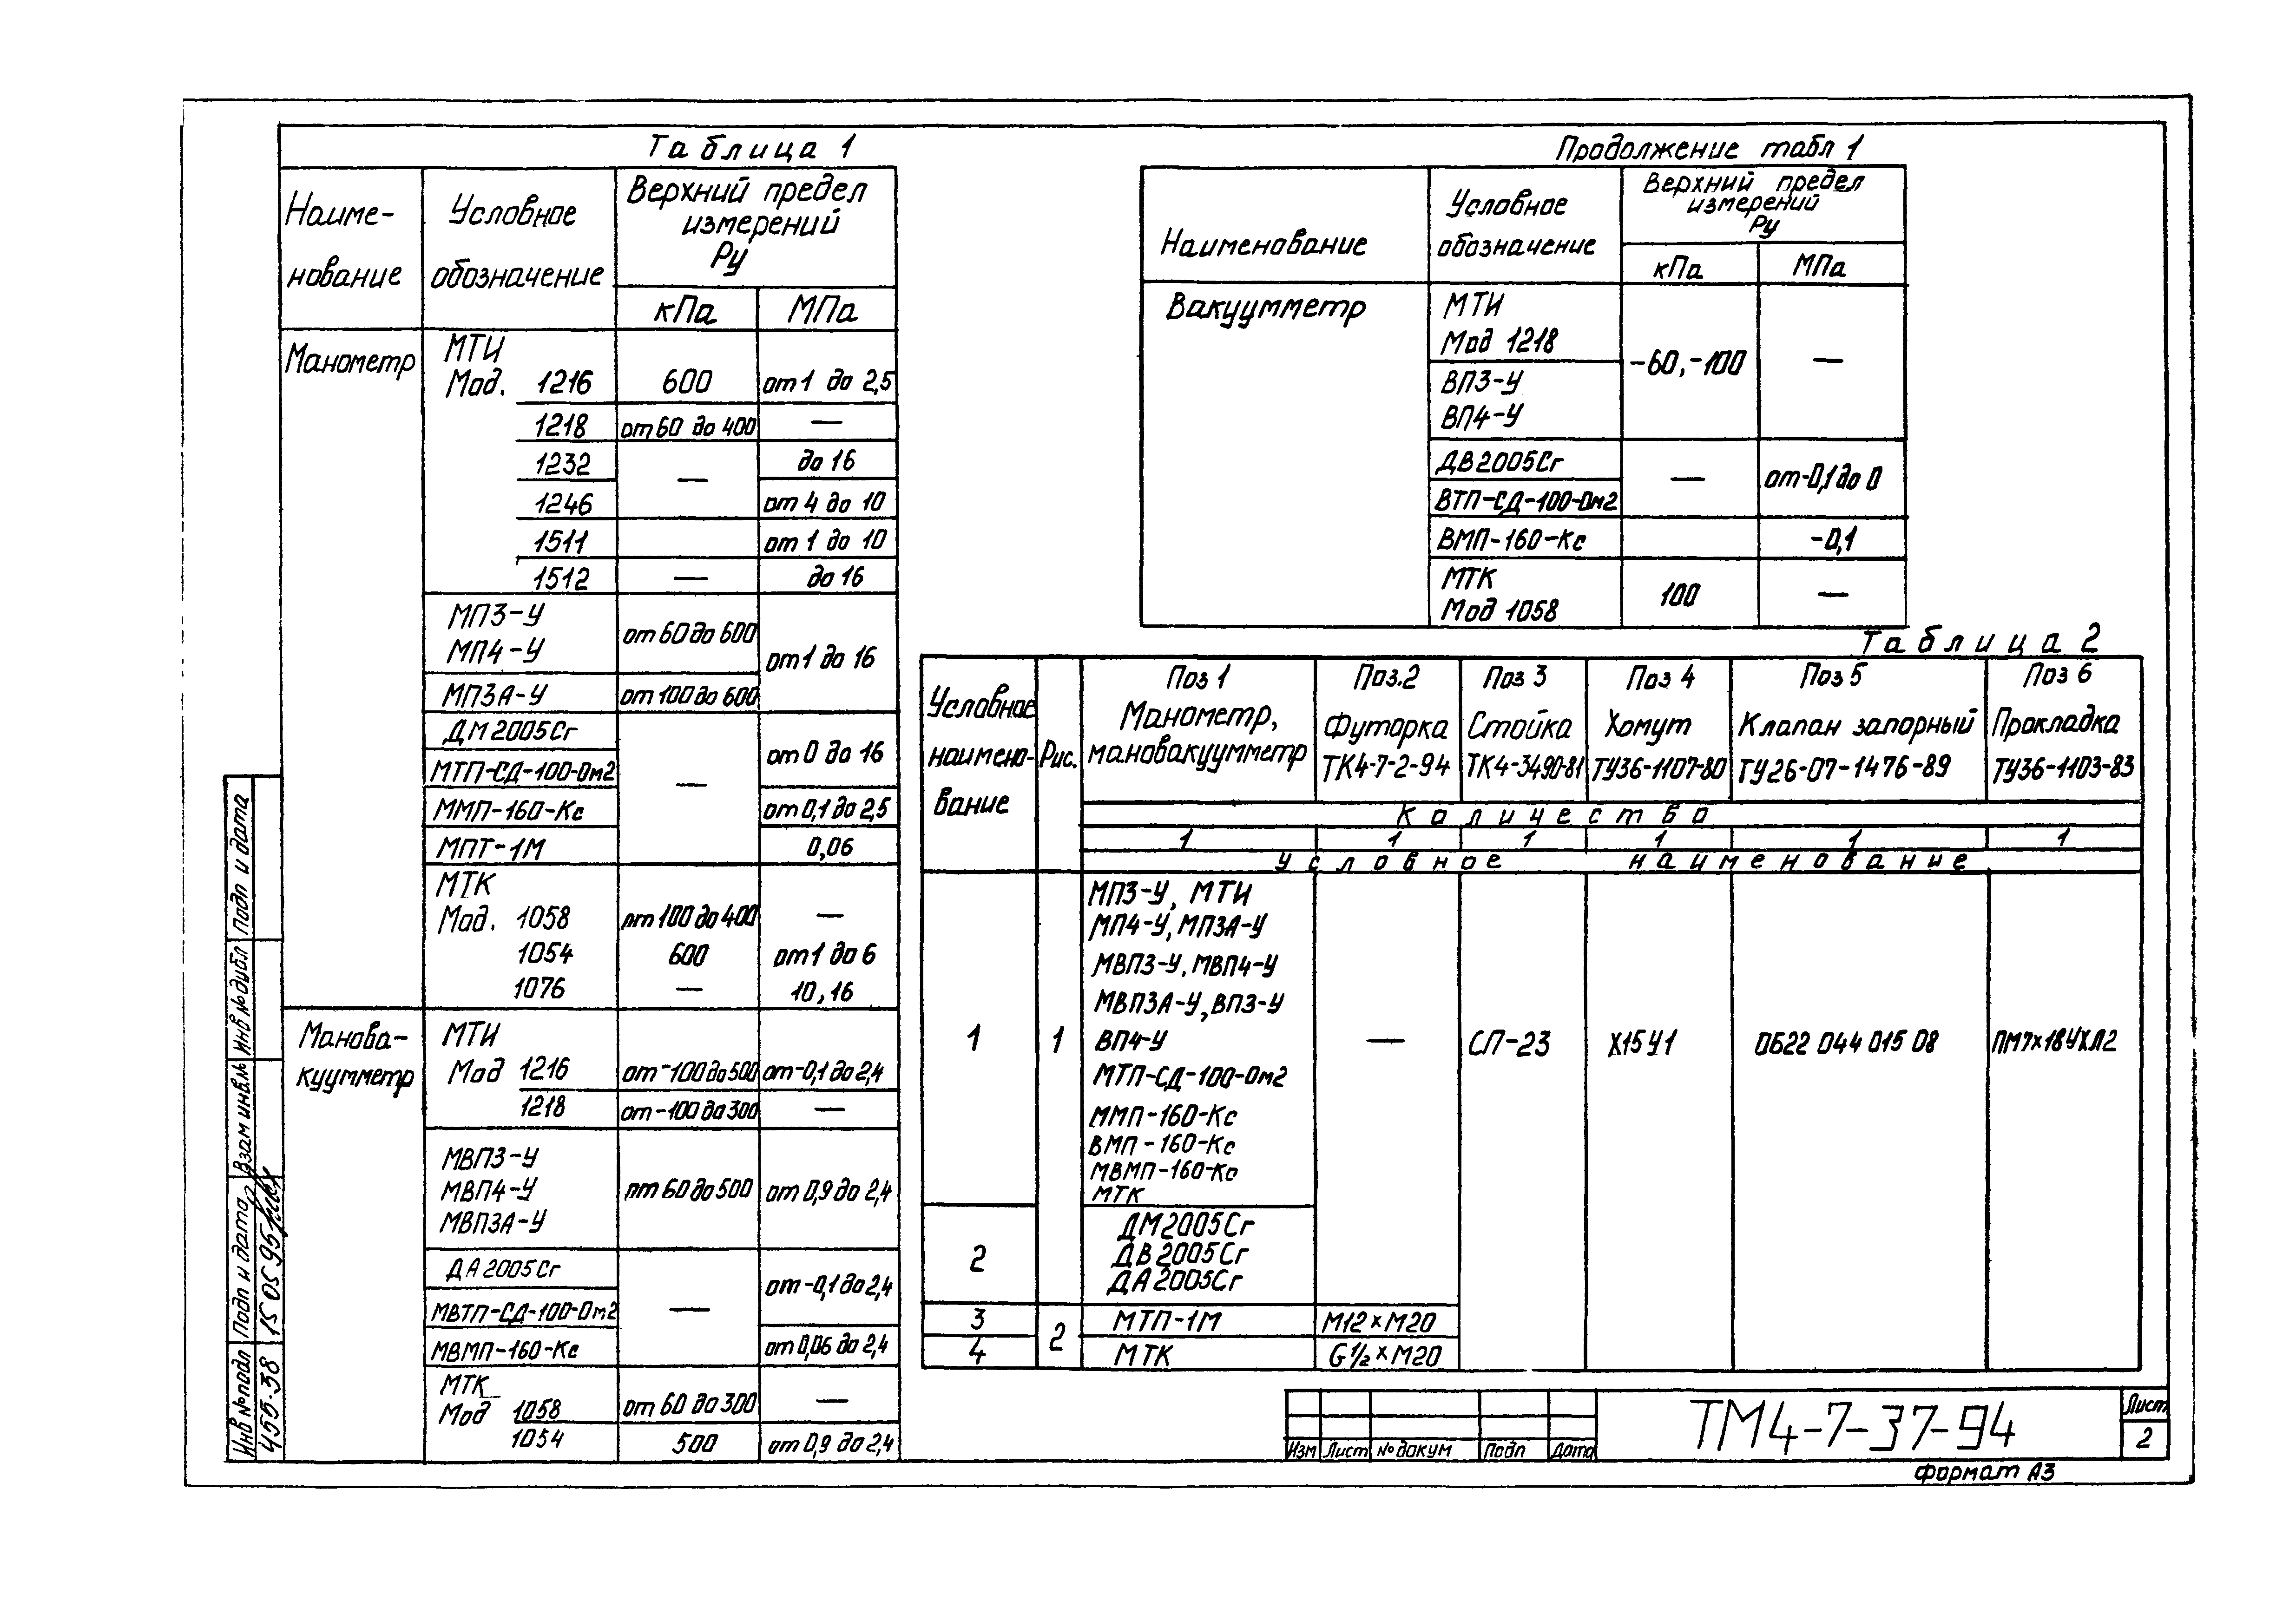 Таблица 1
Наиме-
нование
Условное
обозначение
Верхний предел
измерений
Ру
кПа МПа
Манометр
МТИ
Мод. 1216 600 от 1 до 2,5
1218 от 60 до 400 —
1232 — до 16
1246 от 4 до 10
1511 от 1 до 10
1512 — до 16
МП3-У
МП4-У
от 60 до 600
от 1 до 16
МП3А-У от 100 до 600
ДМ2005Сг
от 0 до 16
МТП-СД-100-Ом2
—
ММП-160-Кс от 0,1 до 2,5
МПТ-1М 0,06
МТК
Мод. 1058 от 100 до 400 —
1054 600 от 1 до 6
1076 — 10, 16
Манова-
куумметр
МТИ
Мод 1216 от -100 до 500 от -0,1 до 2,4
1218 от -100 до 300 —
МВП3-У
МВП4-У от 60 до 500 от 0,9 до 2,4
МВП3А-У
ДА2005Сг
от -0,1 до 2,4
МВТП-СД-100-Ом2 —
МВМП-160-Кс от 0,06 до 2,4
МТК
Мод 1058 от 60 до 300 —
1054 500 от 0,9 до 2,4
Продолжение табл 1
Наименование
Условное
обозначение
Верхний предел
измерений
Ру
кПа МПа
Вакуумметр
МТИ
Мод 1218
-60, -100 —
ВП3-У
ВП4-У
ДВ2005Сг
— от -0,1 до 0
ВТП-СД-100-Ом2
ВМП-160-Кс -0,1
МТК
Мод 1058
100 —
Таблица 2
Условное
наимено-
вание
Рис.
Поз 1
Манометр,
мановакуумметр
Поз.2
Футорка
ТК4-7-2-94
Поз 3
Стойка
ТК4-3490-81
Поз 4
Хомут
ТУ36-1107-80
Поз 5
Клапан запорный
ТУ26-07-1476-89
Поз 6
Прокладка
ТУ36-1103-83
Количество
1 1 1 1 1 1
Условное наименование
1
1
МП3-У, МТИ
МП4-У, МП3А-У
МВП3-У, МВП4-У
МВП3А-У, ВП3-У
ВП4-У
МТП-СД-100-Ом2
ММП-160-Кс
ВМП-160-Кс
МВМП-160-Кс
МТК
—
СП-23
Х15У1
ОБ22 044 015 08
ПМ7х18УХЛ2
2
ДМ2005Сг
ДВ2005Сг
ДА2005Сг
3 МТП-1М М12×М20
2
4 МТК G1/2×М20
Изм Лист № докум Подп Дата
ТМ4-7-37-94
Лист
2
Формат А3
Подп и дата
Инв № дубл
Взам инв.№
Подп и дата
15 05 95
Инв № подл
455-38